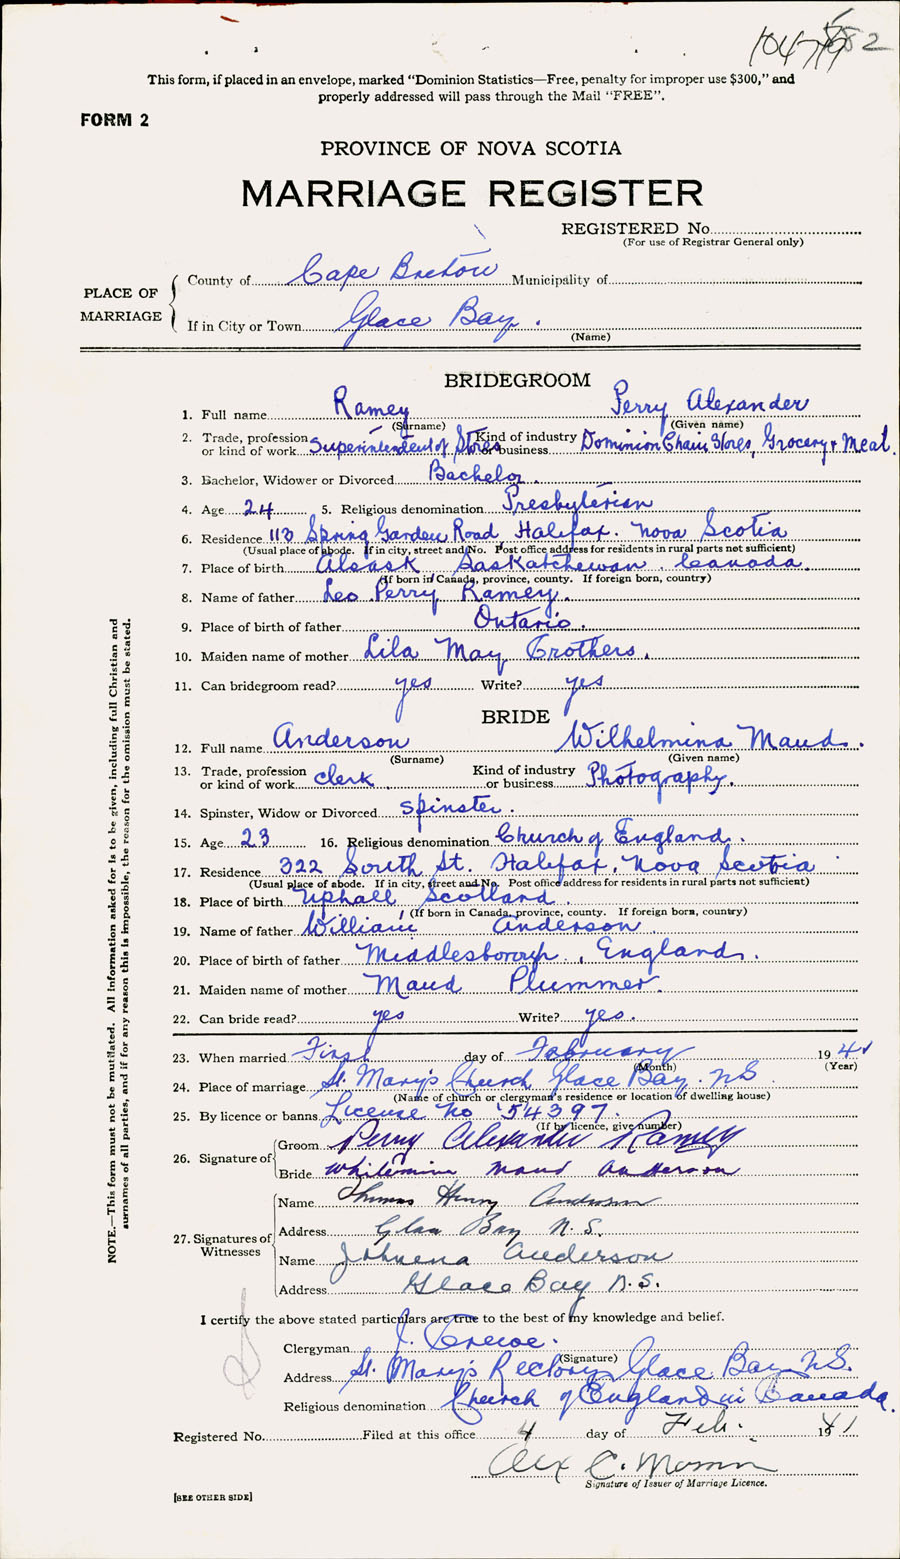 This form, if placed in an envelope, marked "Dominion Statistics—Free, penalty for improper use $300," and
properly addressed will pass through the Mail "FREE".
FORM 2
PROVINCE OF NOVA SCOTIA
MARRIAGE REGISTER
REGISTERED No.
(For use of Registrar General only)
PLACE OF MARRIAGE
County of Cape Breton Municipality of
If in City or Town Glace Bay.
(Name)
BRIDEGROOM
1. Full name Ramey Perry Alexander
(Surname) (Given name)
2. Trade, profession or kind of work Superintendent of Stores Kind of industry or business Dominion Chain Stores, Grocery & Meat.
3. Bachelor, Widower or Divorced Bachelor.
4. Age 24 5. Religious denomination Presbyterian
6. Residence 113 Spring Garden Road Halifax. Nova Scotia
(Usual place of abode. If in city, street and No. Post office address for residents in rural parts not sufficient)
7. Place of birth Alsask Saskatchewan. Canada.
(If born in Canada, province, county. If foreign born, country)
8. Name of father Leo Perry Ramey.
9. Place of birth of father Ontario.
10. Maiden name of mother Lila May Crothers.
11. Can bridegroom read? yes Write? yes
BRIDE
12. Full name Anderson Wilhelmina Maud.
(Surname) (Given name)
13. Trade, profession or kind of work clerk Kind of industry or business Photography.
14. Spinster, Widow or Divorced spinster.
15. Age 23 16. Religious denomination Church of England.
17. Residence 322 South St. Halifax, Nova Scotia
(Usual place of abode. If in city, street and No. Post office address for residents in rural parts not sufficient)
18. Place of birth Uphall Scotland.
(If born in Canada, province, county. If foreign born, country)
19. Name of father William Anderson.
20. Place of birth of father Middlesborough, England.
21. Maiden name of mother Maud Plummer.
22. Can bride read? yes Write? yes.
23. When married First day of February 1941
(Month) (Year)
24. Place of marriage St. Mary's Church Glace Bay. NS.
(Name of church or clergyman's residence or location of dwelling house)
25. By licence or banns License No 54397.
(If by licence, give number)
26. Signature of
Groom Perry Alexander Ramey
Bride Maud Anderson
27. Signatures of Witnesses
Name Thomas Henry Anderson
Address Glace Bay N.S.
Name Anderson
Address Glace Bay N.S.
I certify the above stated particulars are true to the best of my knowledge and belief.
Clergyman
(Signature)
Address St. Mary's Rectory Glace Bay NS.
Religious denomination Church of England in Canada.
Registered No. Filed at this office 4 day of Feb. 1941
Alex C.
Signature of Issuer of Marriage Licence.
[SEE OTHER SIDE]
NOTE.—This form must not be mutilated. All information asked for is to be given, including full Christian and
surnames of all parties, and if for any reason this is impossible, the reason for the omission must be stated.